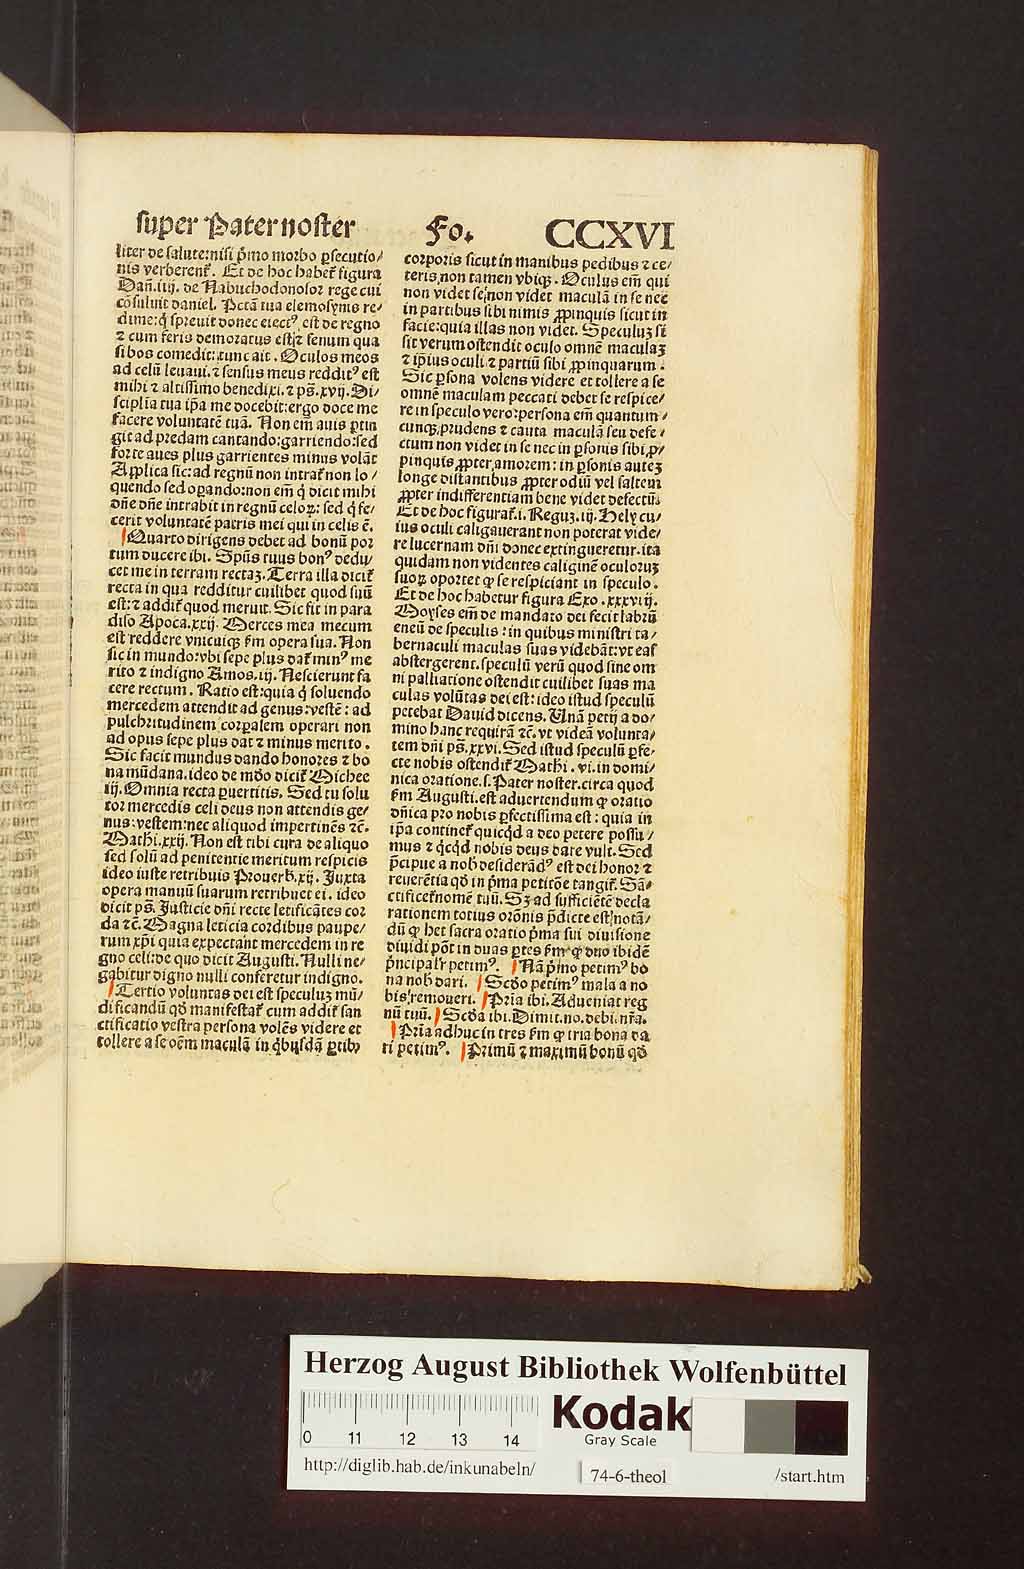 super Pater noster Fo. CCXVI
liter de salute: nisi p̄mo morbo ꝑsecutio/
nis verberent᷑. Et de hoc habet᷑ figura
Dañ. iiij. de Nabuchodonosor rege cui
cōsuluit daniel. Pctā tua elemosynis re/
dime: q̇ spreuit donec eiectꝰ est de regno
⁊ cum feris demoratus est: ⁊ fenum qua
si bos comedit: tunc ait. Oculos meos
ad celū leuaui. ⁊ sensus meus redditꝰ est
mihi ⁊ altissimo benedixi. ⁊ pš. xvij. Di/
sciplīa tua ip̄a me docebit: ergo doce me
facere voluntatē tuā. Non em̄ auis ꝑtin
git ad predam cantando: garriendo: sed
forte aues plus garrientes minus volāt
Applica sic: ad regnū non intrat᷑ non lo/
quendo sed oꝑando: non em̄ q̇ dicit mihi
dn̄e dn̄e intrabit in regnū celoꝝ: sed q̇ fe/
cerit voluntatē patris mei qui in celis ē.
Quarto dirigens debet ad bonū por
tum ducere ibi. Spūs tuus bonꝰ dedu/
cet me in terram rectaꝫ. Terra illa dicit᷑
recta in qua redditur cuilibet quod suū
est: ⁊ addit᷑ quod meruit. Sic fit in para
diso Apoca. xxij. Merces mea mecum
est reddere vnicuiqꝫ ẜm opera sua. Non
sic in mundo: vbi sepe plus dat᷑ minꝰ me
rito ⁊ indigno Amos. iij. Nescierunt fa
cere rectum. Ratio est: quia q̇ soluendo
mercedem attendit ad genus: vestē: ad
pulchritudinem corꝑalem operari non
ad opus sepe plus dat ⁊ minus merito.
Sic facit mundus dando honores ⁊ bo
na mūdana. ideo de mōo dicit᷑ Michee
iij. Omnia recta ꝑuertitis. Sed tu solu
tor mercedis celi deus non attendis ge/
nus: vestem: nec aliquod impertinēs ⁊c̄.
Mathi. xxij. Non est tibi cura de aliquo
sed solū ad penitentie meritum respicis
ideo iuste retribuis Prouerb. xij. Juxta
opera manuū suarum retribuet ei. ideo
dicit pš. Justicie dn̄i recte letificātes cor
da ⁊c̄. Magna leticia cordibus paupe/
rum xp̄i quia expectant mercedem in re
gno celi: de quo dicit Augusti. Nulli ne/
gabitur digno nulli conferetur indigno.
Tertio voluntas dei est speculuꝫ mū/
dificandū qō manifestat᷑ cum addit᷑ san
ctificatio vestra persona volēs videre et
tollere a se oēm maculā in q̇busdā ꝑtibꝰ
corporis sicut in manibus pedibus ⁊ ce/
teris, non tamen vbiqꝫ. Oculus em̄ qui
non videt se, non videt maculā in se nec
in partibus sibi nimis ꝓpinquis sicut in
facie: quia illas non videt. Speculuꝫ si
sit verum ostendit oculo omnē maculaꝫ
⁊ ip̄ius oculi ⁊ partiū sibi ꝓpinquarum.
Sic ꝑsona volens videre et tollere a se
omnē maculam peccati debet se respice/
re in speculo vero: persona em̄ quantum/
cunqꝫ prudens ⁊ cauta maculā seu defe/
ctum non videt in se nec in ꝑsonis sibi ꝓ/
pinquis ꝓpter amorem: in ꝑsonis auteꝫ
longe distantibus ꝓpter odiū vel saltem
ꝓpter indifferentiam bene videt defectū.
Et de hoc figurat᷑. i. Reguꝫ. iij. Hely cu/
ius oculi caligauerant non poterat vide/
re lucernam dn̄i donec extingueretur. ita
quidam non videntes caliginē oculoruꝫ
suoꝝ oportet ꝙ se respiciant in speculo.
Et de hoc habetur figura Exo. xxxviij.
Moyses em̄ de mandato dei fecit labrū
eneū de speculis: in quibus ministri ta/
bernaculi maculas suas videbāt: vt eas
abstergerent. speculū verū quod sine om
ni palliatione ostendit cuilibet suas ma
culas volūtas dei est: ideo istud speculū
petebat Dauid dicens. Unā petij a do/
mino hanc requirā ⁊c̄. vt videā volunta/
tem dn̄i pš. xxvi. Sed istud speculū ꝑfe/
cte nobis ostendit᷑ Mathi. vi. in domi/
nica oratione. s. Pater noster. circa quod
ẜm Augusti. est aduertendum ꝙ oratio
dn̄ica pro nobis ꝑfectissima est: quia in
ip̄a continet᷑ quicq̇d a deo petere possu/
mus ⁊ q̇cq̇d nobis deus dare vult. Sed
p̄cipue a nob̄ desiderādꝰ est dei honor ⁊
reuerētia qō in p̄ma petitōe tangit᷑. Sā/
ctificet᷑ nomē tuū. Sꝫ ad sufficiētē decla
rationem totius orōnis p̄dicte est notā/
dū ꝙ hec sacra oratio p̄ma sui diuisione
diuidi pōt in duas ꝑtes ẜm ꝙ duo ibidē
p̄ncipalr̄ petimꝰ. Nā p̄mo petimꝰ bo
na nob̄ dari. Scōo petimꝰ mala a no
bis remoueri. Pria ibi. Adueniat reg
nū tuū. Scōa ibi. Dimit. no. debi. nr̄a.
Pria adhuc in tres ẜm ꝙ tria bona da
ri petimꝰ. Primū ⁊ maximū bonū qō
Herzog August Bibliothek Wolfenbüttel
0 11 12 13 14
Kodak
Gray Scale
http://diglib.hab.de/inkunabeln/ 74-6-theol /start.htm